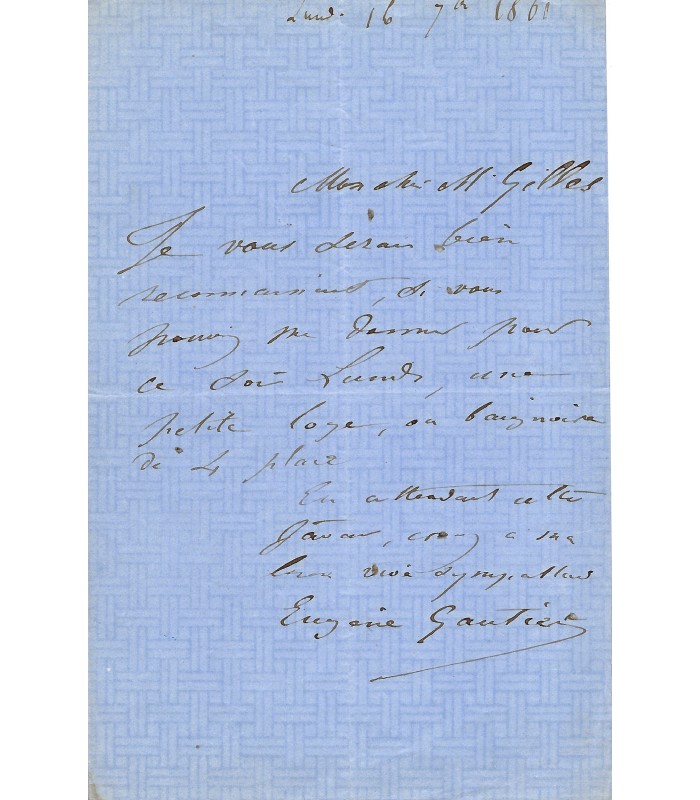 Lundi 16 7bre 1861
Mon cher Mr Gilles
Je vous serais bien
reconnaissant, si vous
pouviez me donner pour
ce soir Lundi, une
petite loge, ou baignoire
de 4 place
En attendant cette
faveur, croyez à ma
bien vive sympathie
Eugène Gautier